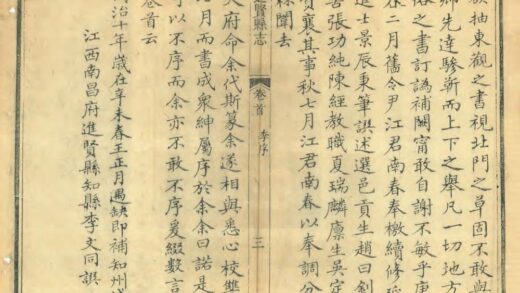 抽東觀之書視北門之草固不敢與
鄉先達驂靳而上下之舉凡一切地方
之書訂譌補闕甯敢自謝不敏乎庚
二月舊令尹江君南春奉檄續修
進士景辰秉筆譔述選邑貢生趙曰釗
善張功純陳經教職夏瑞麟廩生吳定
贊襄其事秋七月江君南春以奉調分
聞去
賢縣志
卷首 李序
三
大府命余代斯篆余遂相與悉心校讐
月而書成衆紳屬序於余余曰諾是
可以不序而余亦不敢不序爰綴數言
卷首云
同治十年歲在辛未春王正月遇缺即補知州
江西南昌府進賢縣知縣李文同譔